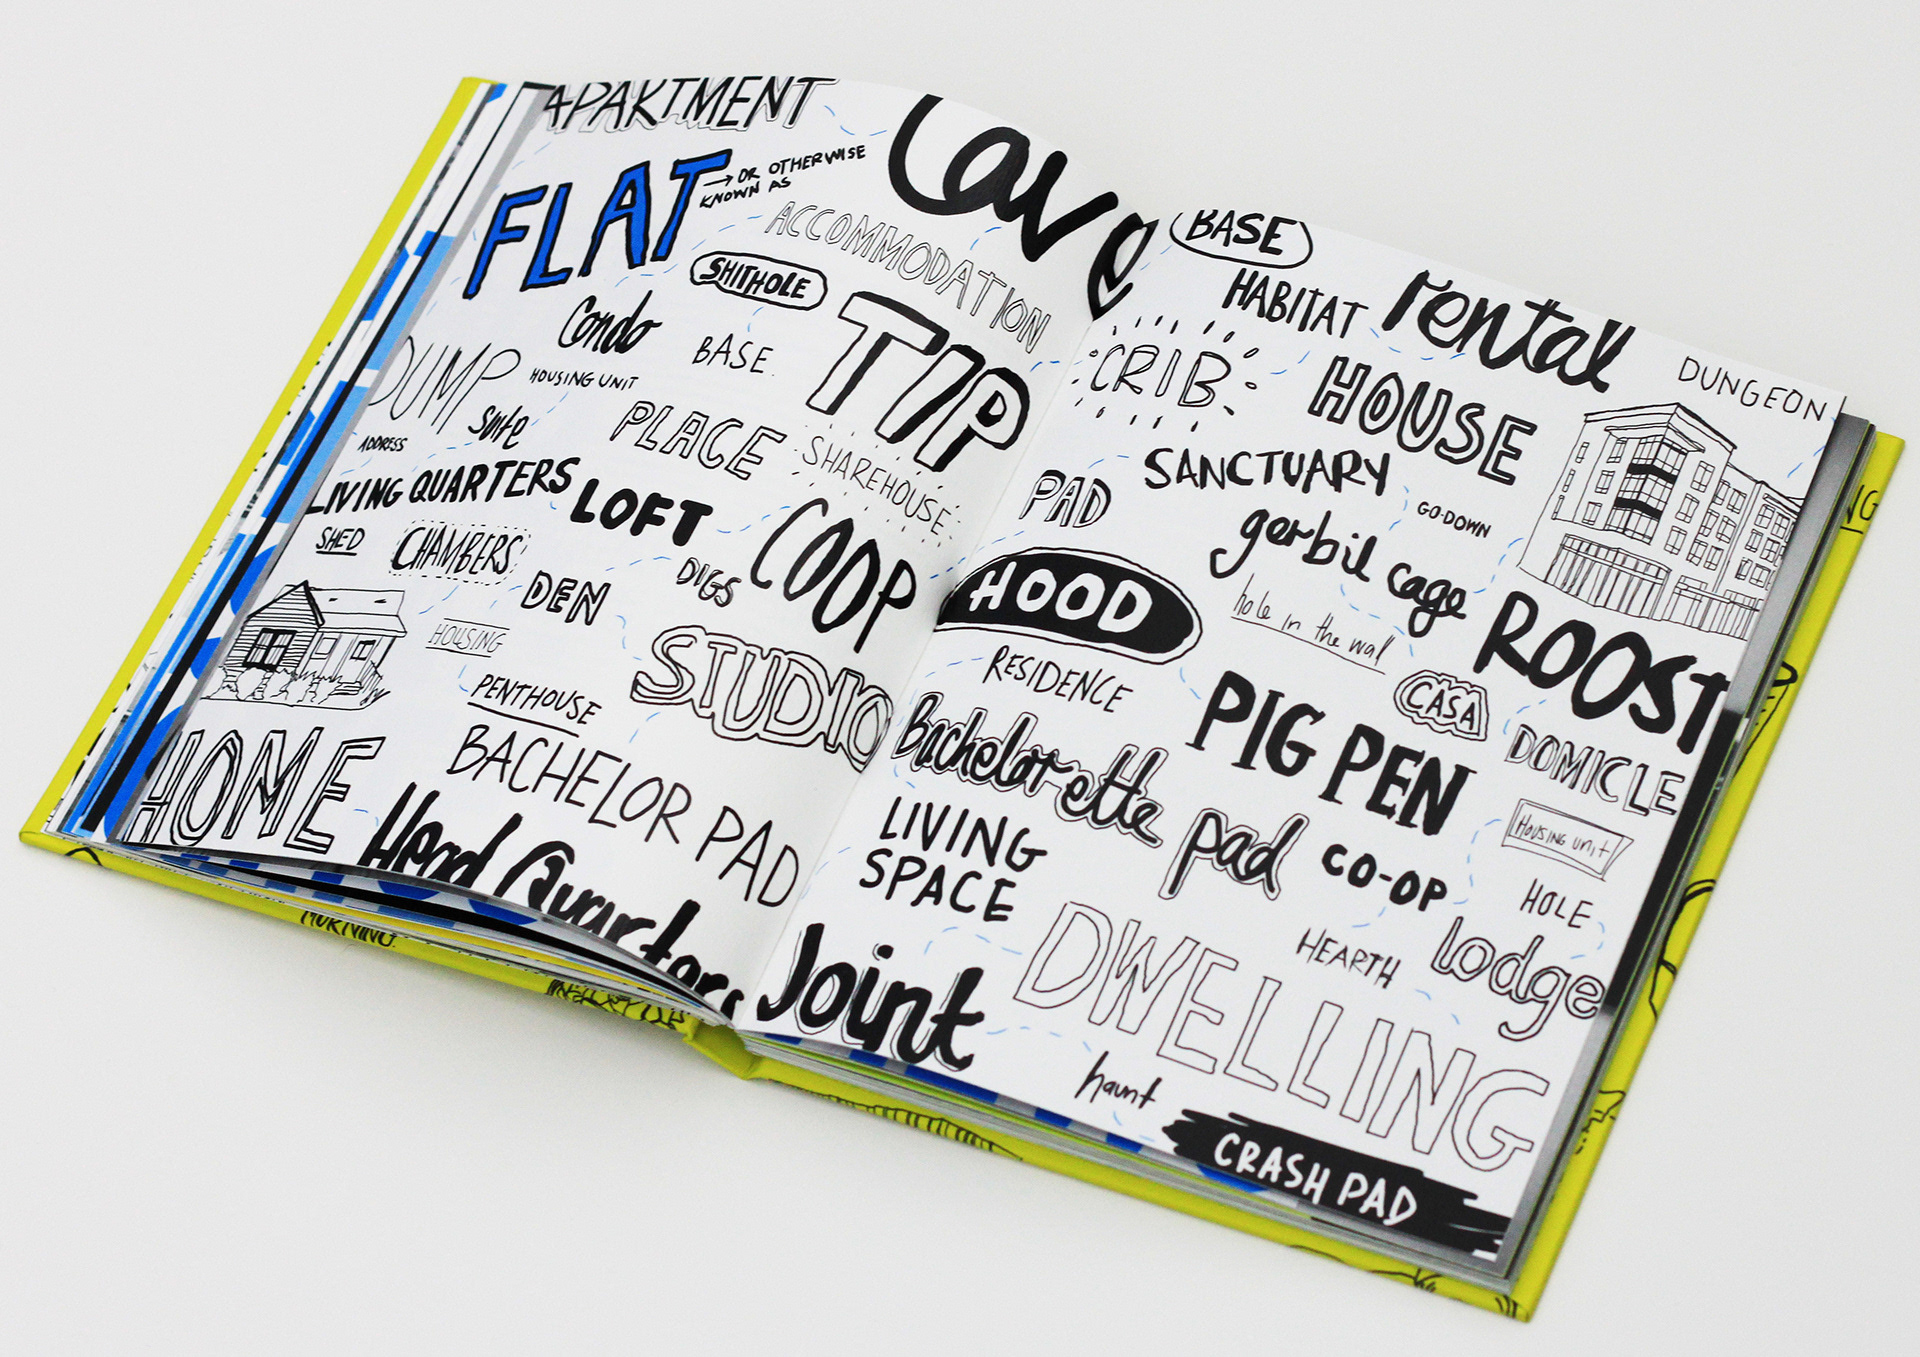 APARTMENT
FLAT
→ OR OTHERWISE
KNOWN AS
ACCOMMODATION
SHITHOLE
Condo
BASE.
TIP
DUMP
HOUSING UNIT
Suite
ADDRESS
PLACE
SHAREHOUSE
LIVING QUARTERS
LOFT
SHED
CHAMBERS
DEN
DIGS
COOP
HOUSING
STUDIO
PENTHOUSE
HOME
BACHELOR PAD
Head Quarters
Cave
BASE
HABITAT
rental
CRIB
HOUSE
DUNGEON
PAD
SANCTUARY
GO-DOWN
gerbil cage
HOOD
hole in the wall
ROOST
RESIDENCE
CASA
PIG PEN
DOMICLE
Bachelorette pad
HOUSING UNIT
LIVING
SPACE
CO-OP
HOLE
HEARTH
lodge
Joint
DWELLING
haunt
CRASH PAD
MORNING.